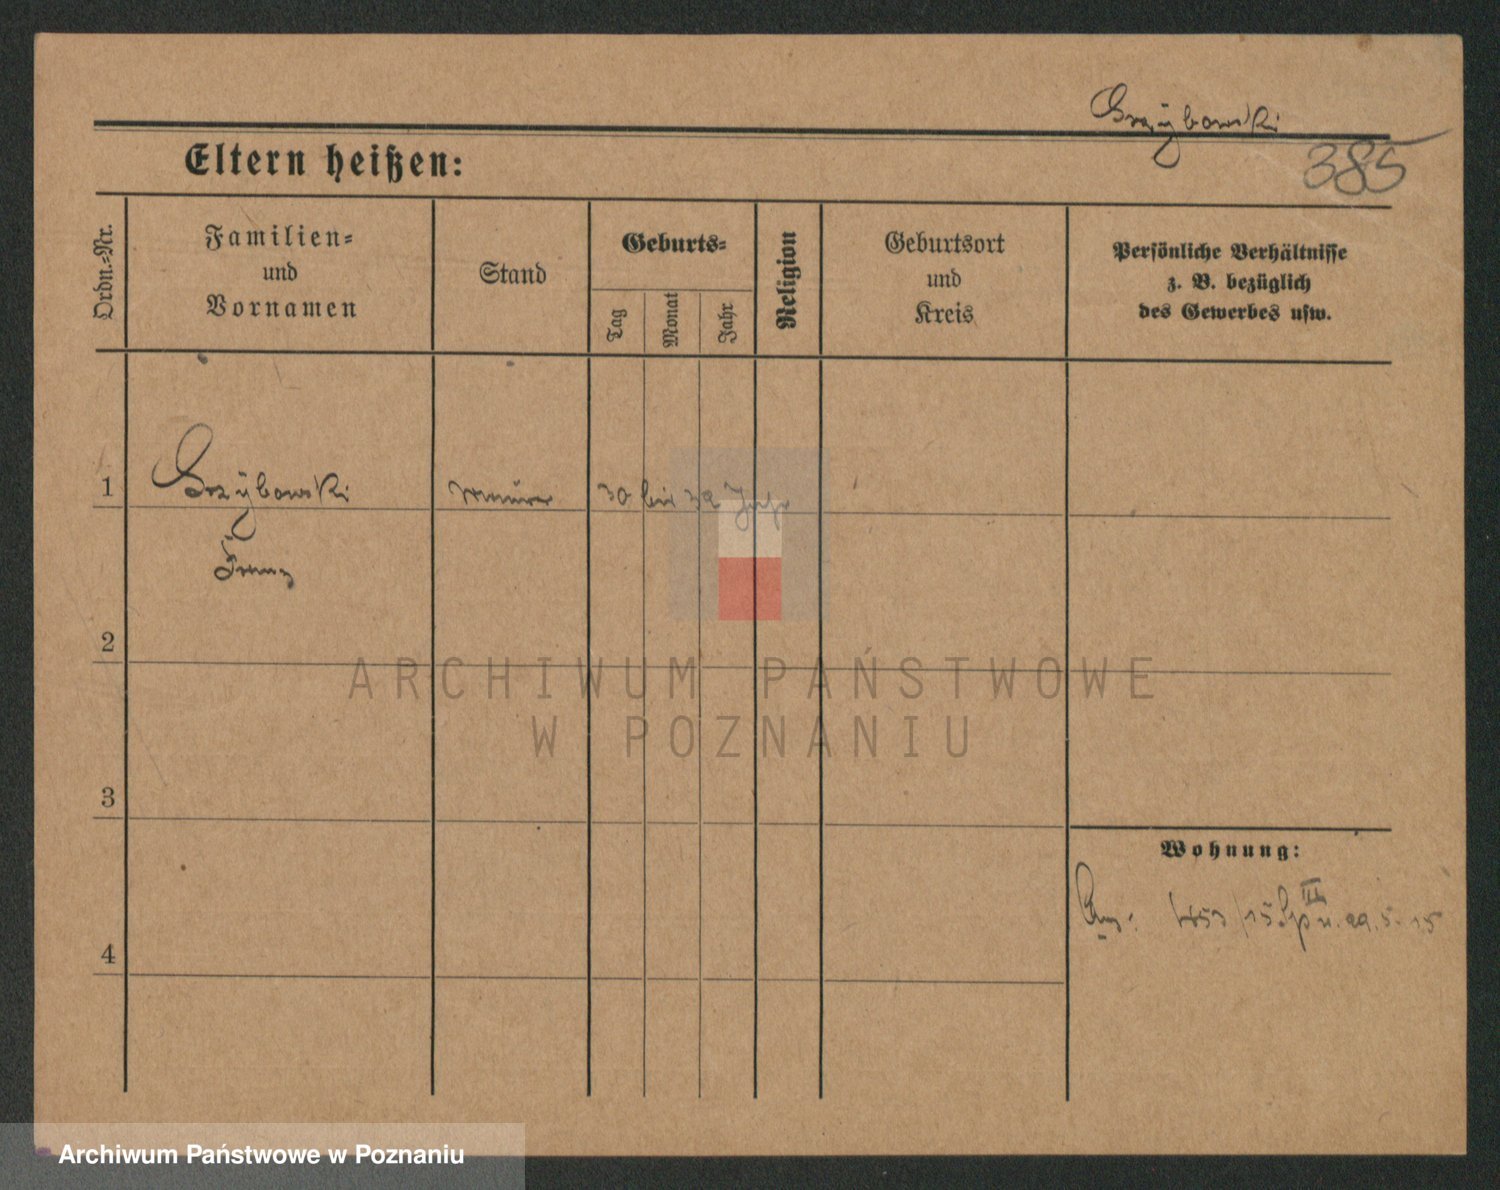 Grzybowski
385
Eltern heißen:
Ordn.=Nr.
Familien=
und
Vornamen
Stand
Geburts=
Tag
Monat
Jahr
Religion
Geburtsort
und
Kreis
Persönliche Verhältnisse
z. B. bezüglich
des Gewerbes usw.
1 Grzybowski Maurer 30 bis 32 Jahr
Franz
2
ARCHIWUM PAŃSTWOWE
W POZNANIU
3
Wohnung:
III
/15 v. 29.5.15
4
Archiwum Państwowe w Poznaniu